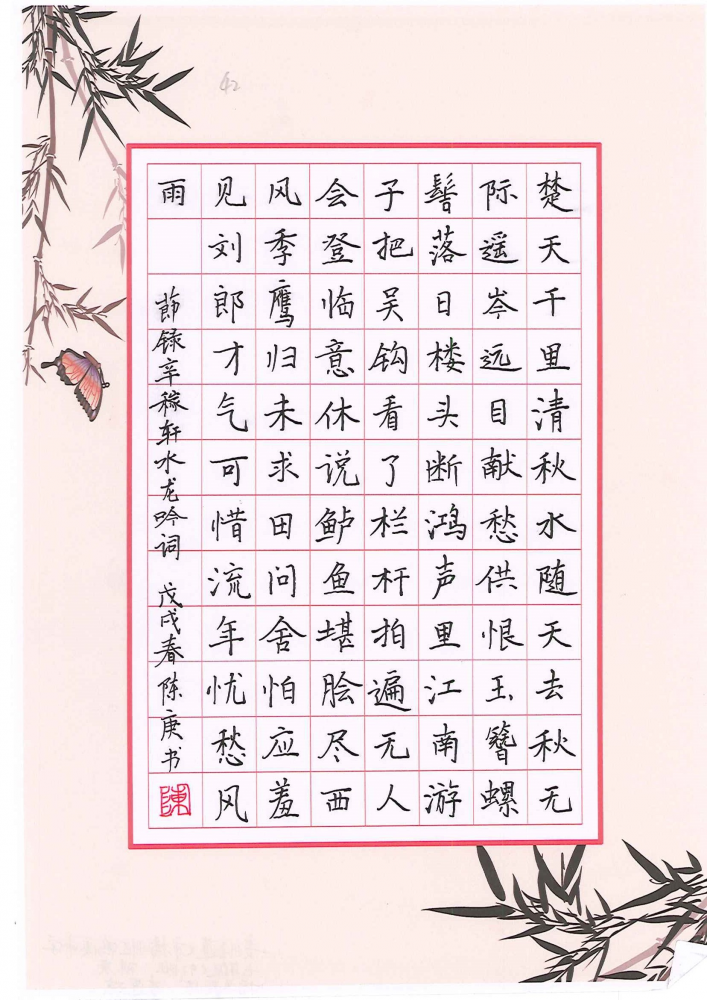 楚天千里清秋水随天去秋无
际遥岑远目献愁供恨玉簪螺
髻落日楼头断鸿声里江南游
子把吴钩看了栏杆拍遍无人
会登临意休说鲈鱼堪脍尽西
风季鹰归未求田问舍怕应羞
见刘郎才气可惜流年忧愁风
雨
节录辛稼轩水龙吟词 戊戌春陈庚书
陈
42